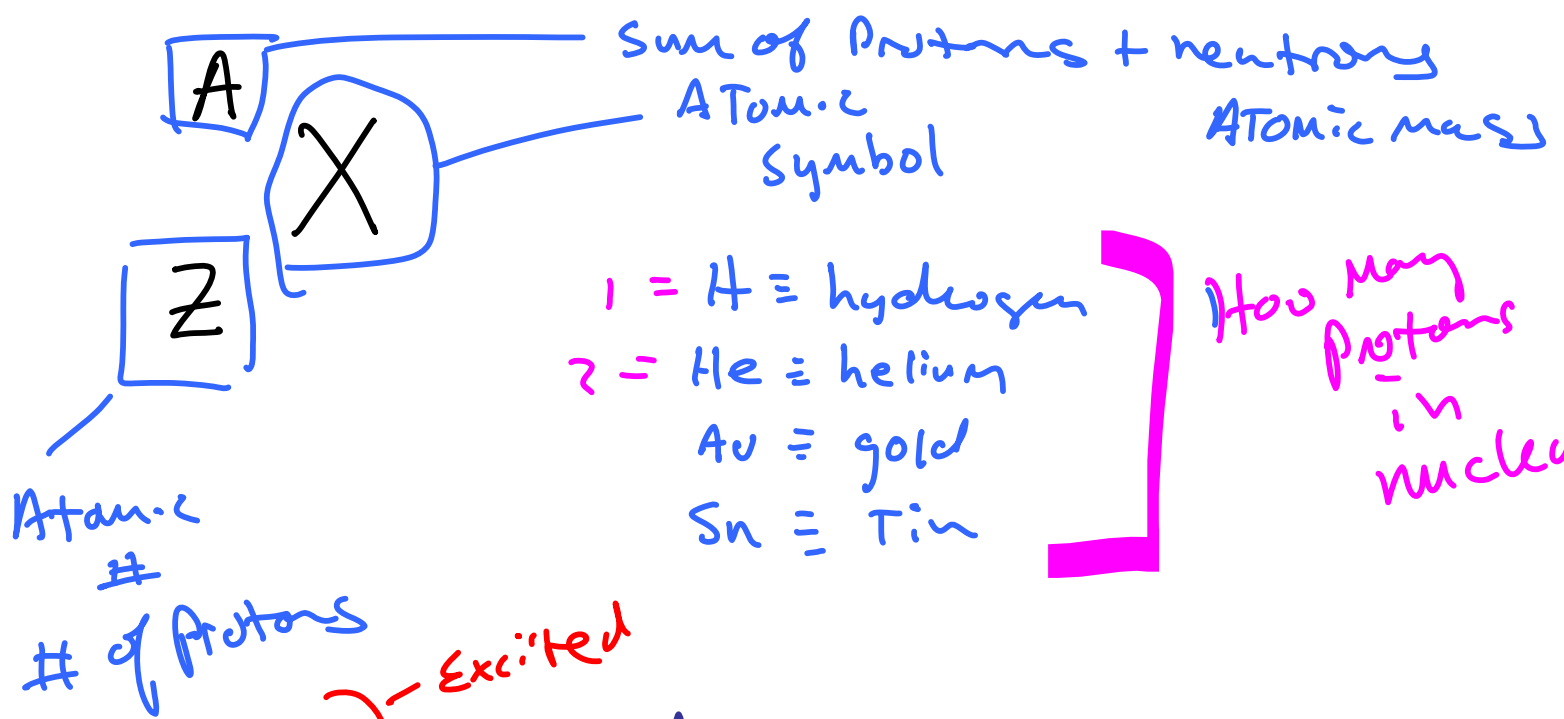 A
Sum of Protons + neutrons
Atomic mass
X
Atomic
Symbol
Z
1 = H ≡ hydrogen
2 = He ≡ helium
Au ≡ gold
Sn ≡ Tin
How many
protons
in
Atomic
#
# of protons
Excited